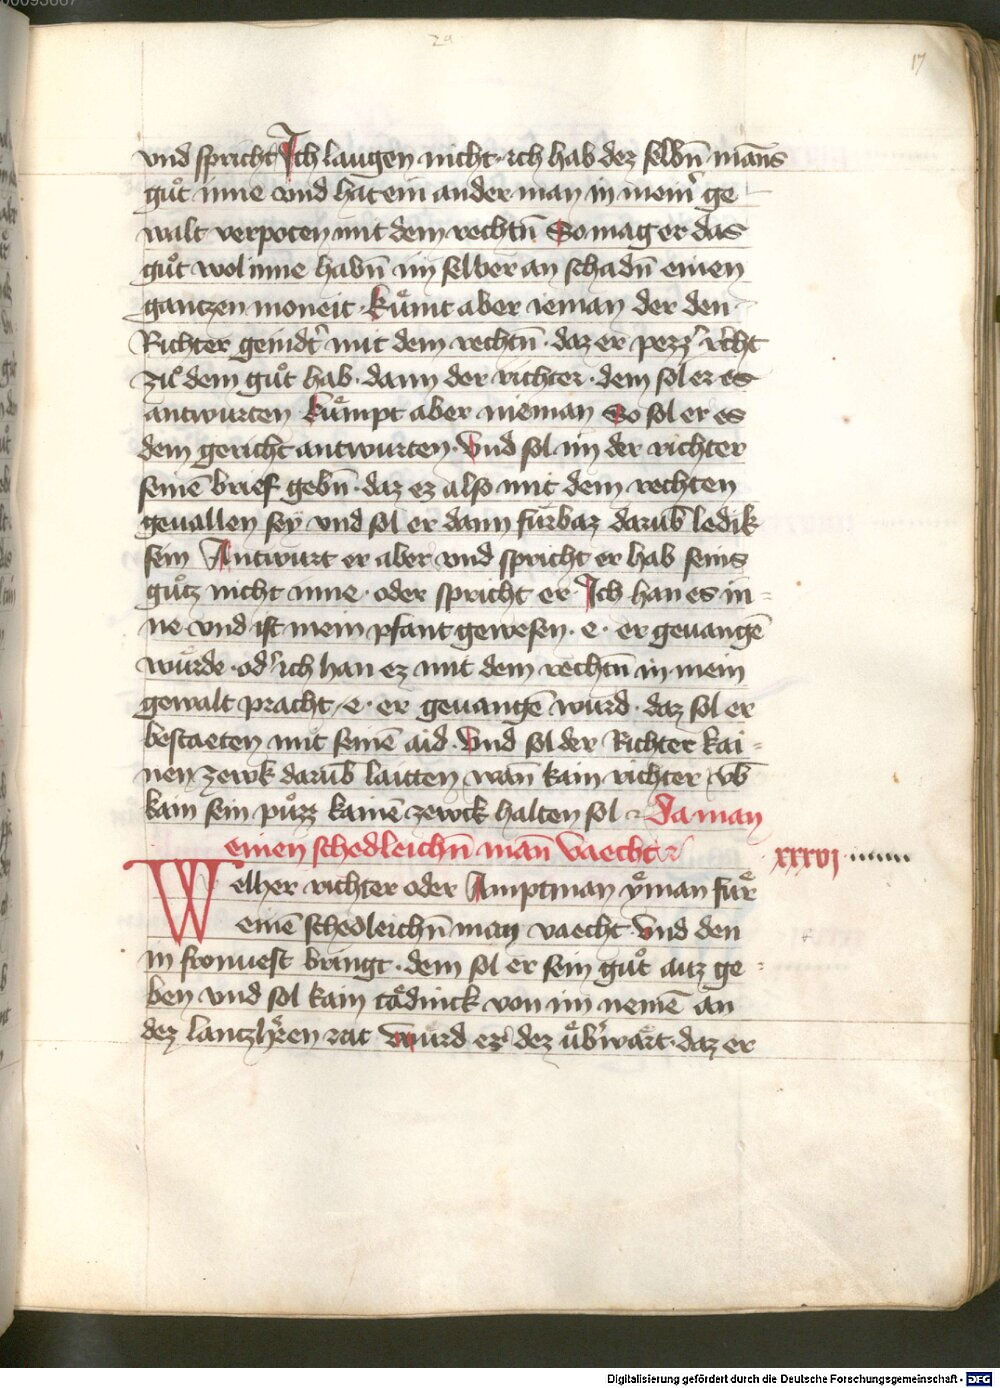 29
17
vnd spricht Ich laugen nicht · ich hab dez selbn̄ mans
gůt inne vnd hat ein ander man in meinˀ ge
walt verpoten mit dem rechtn̄ So mag er das
gůt wol inne habn̄ im selber an schadn̄ einen
gantzen moneit · kůmt aber ieman der den
Richter geindtˀ mit dem rechtn̄ · daz er pezzˀ rˀcht
zů dem gůt hab · dann der richter · dem sol er es
antwurten kůmpt aber nieman So sol er es
dem gericht antwurten · Vnd sol im der richter
seinē brief gebn̄ · daz ez also mit dem rechten
geuallen seÿ vnd sol er dann fürbaz darūb ledik
sein Antwurt er aber vnd spricht er hab seins
gůtz nicht inne · oder spricht er Ich han es in =
ne vnd ist mein pfant gewesen · e · er geuangē
würde · odˀ ich han ez mit dem rechtn̄ in mein
gewalt pracht · e · er geuangē wurd · daz sol er
bestaeten mit seinē aid · Vnd sol der Richter kai =
nen zewk darūb laitten wan̄ kain richter v̄b
kain sein půzz kainē zewck halten sol Da man
einen schedleichn̄ man̄ vaecht
xxxvj
Welher richter oder Amptman yͤman für
einē schedleichn̄ man vaecht Vnd den
in fronuest bringt · dem sol er sein gůt auz ge =
ben vnd sol kain tädinck von im nemē an
dez lantzhˀren rat wurd er dez übˀwärt · daz er
Digitalisierung gefördert durch die Deutsche Forschungsgemeinschaft - DFG